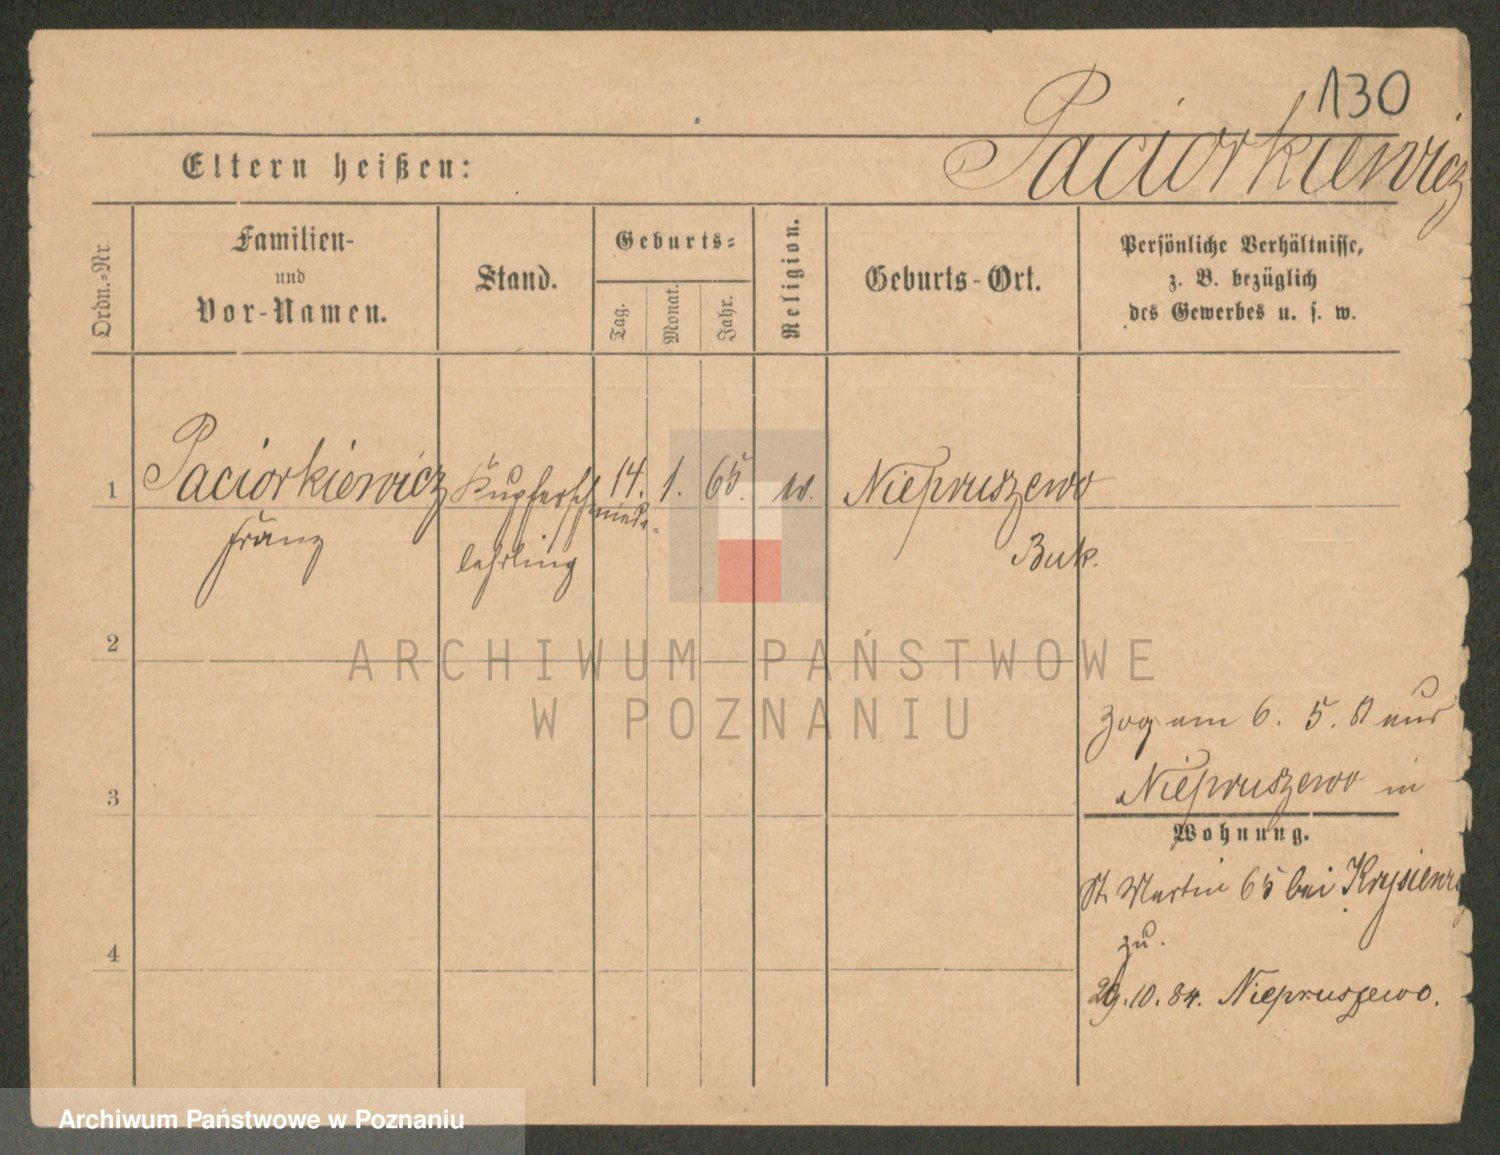 130
Paciorkiewicz
Eltern heißen:
Ordn.-Nr
Familien-
und
Vor-Namen.
Stand.
Geburts-
Tag.
Monat.
Jahr.
Religion.
Geburts-Ort.
Persönliche Verhältnisse,
z. B. bezüglich
des Gewerbes u. s. w.
1
Paciorkiewicz
Franz
Kupferschmiede-
lehrling
14.
1.
65.
Niepruszewo
Buk.
2
3
4
zog am 6. 5. aus
Niepruszewo in
Wohnung.
St. Martin 65 bei
zu.
29.10.84. Niepruszewo.
ARCHIWUM PAŃSTWOWE
W POZNANIU
Archiwum Państwowe w Poznaniu